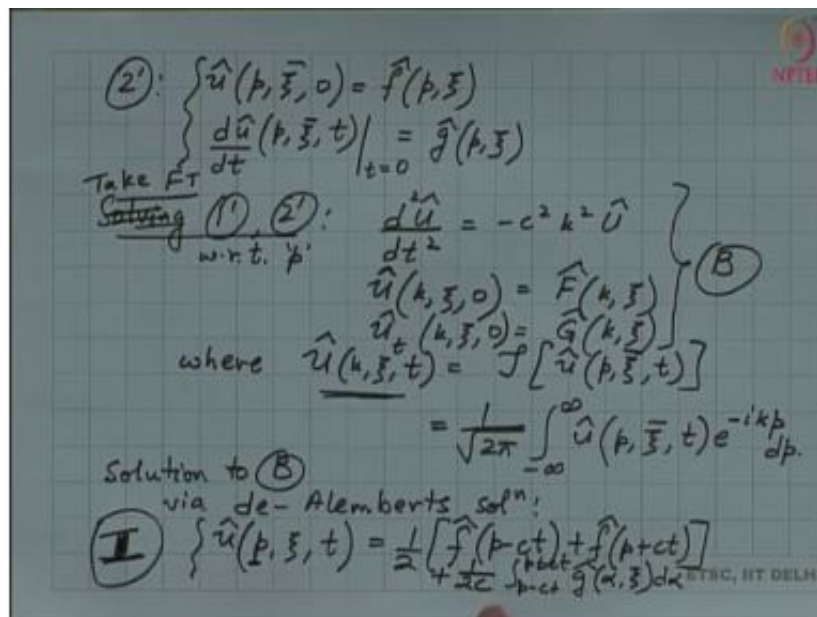 NPTEL
(2'): { û(p, ξ̄, 0) = f̂(p, ξ̄)
dû/dt (p, ξ̄, t)|_{t=0} = ĝ(p, ξ)
Take FT
Solving (1'), (2'): d²Û/dt² = -c² k² Û
w.r.t. 'p'
Û(k, ξ, 0) = F̂(k, ξ)
Û_t(k, ξ, 0) = Ĝ(k, ξ) } (B)
where Û(k, ξ, t) = F[û(p, ξ̄, t)]
= 1/√2π ∫_{-∞}^{∞} û(p, ξ̄, t) e^{-ikp} dp.
Solution to (B)
via de-Alemberts solⁿ:
(I) { û(p, ξ, t) = 1/2 [f̂(p-ct) + f̂(p+ct)]
+ 1/2c ∫_{p-ct}^{p+ct} ĝ(α, ξ)dα
ETSC, IIT DELH